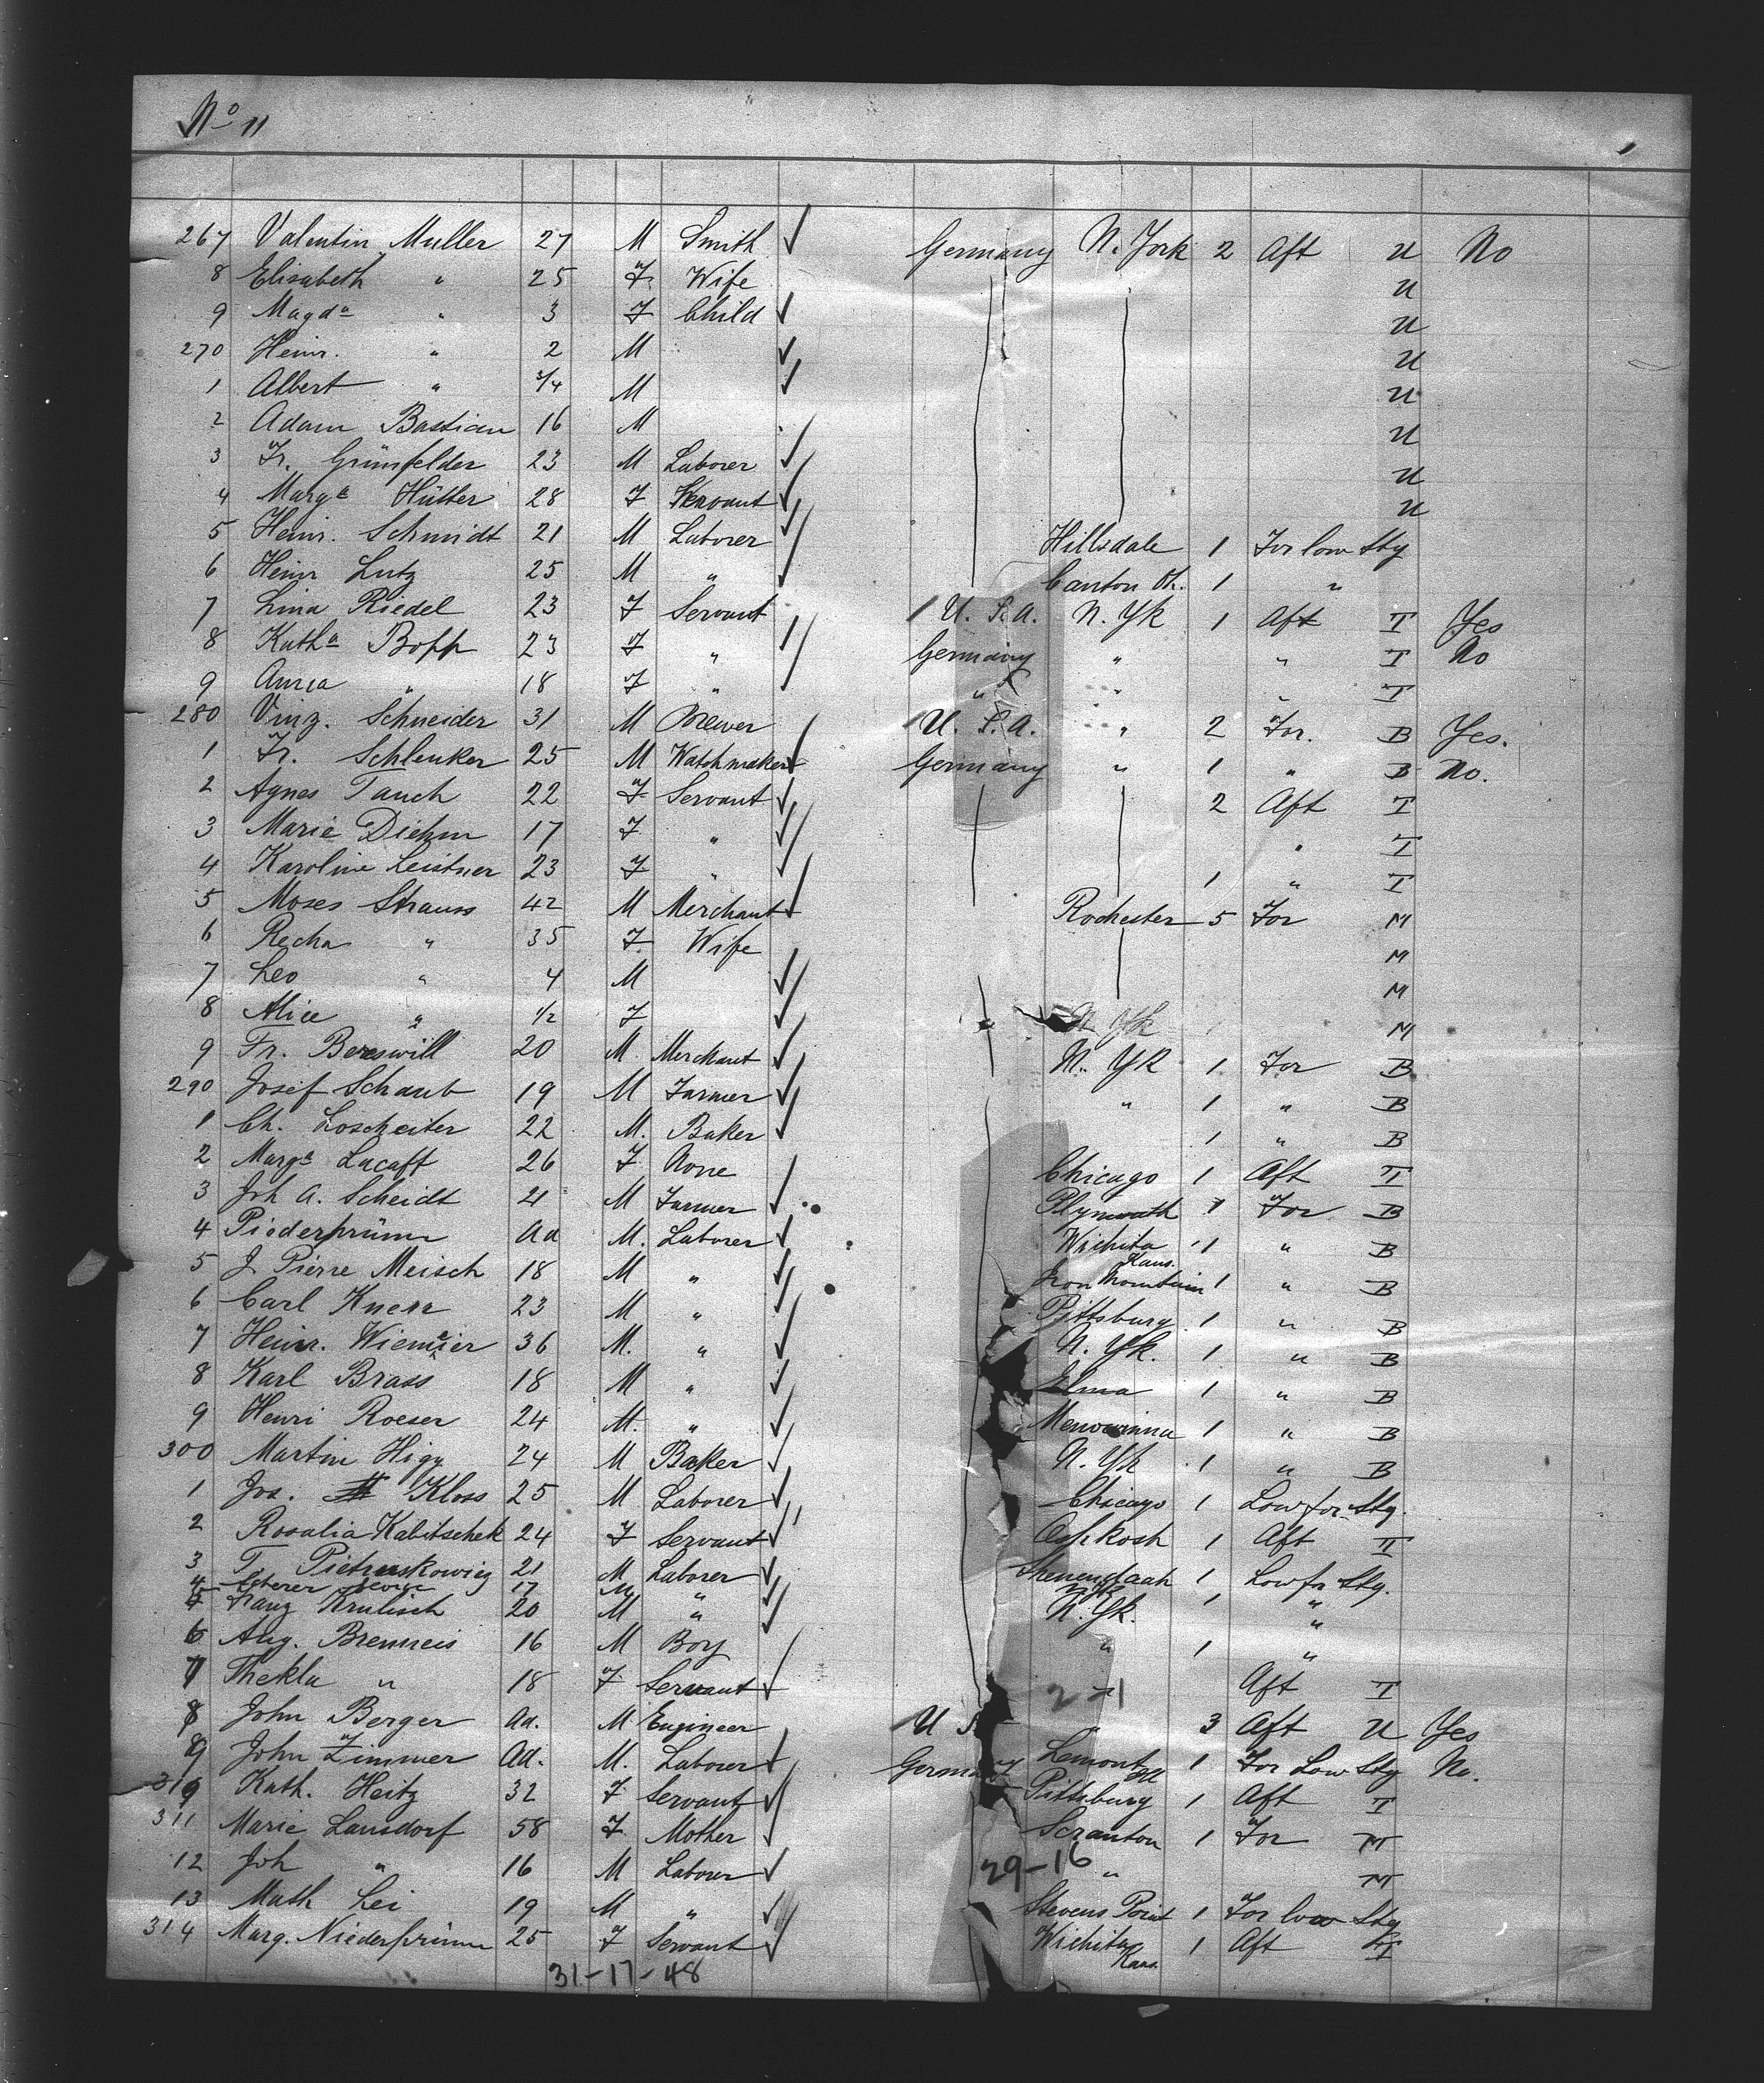 No 11
267 Valentin Muller 27 M Smith Germany N. York 2 Aft U No
8 Elisabeth " 25 F Wife U
9 Magda " 3 F Child U
270 Heinr. " 2 M U
1 Albert " 3/4 M U
2 Adam Bastian 16 M U
3 Fr. Grünfelder 23 M Laborer U
4 Marga Hütter 28 F Servant U
5 Heinr. Schmidt 21 M Laborer Hillsdale 1 For low Stg
6 Heinr Lutz 25 M " Canton Oh. 1 "
7 Lina Riedel 23 F Servant U. S. A. N. Yk 1 Aft T Yes
8 Katha Bopp 23 F " Germany " " T No
9 Anna " 18 F " " " " T
280 Vinz. Schneider 31 M Brewer U. S. A. " 2 For. B Yes.
1 Fr. Schlenker 25 M Watchmaker Germany " 1 " B No.
2 Agnes Tauch 22 F Servant 2 Aft T
3 Marie Diehm 17 F " " T
4 Karoline Leistner 23 F " 1 " T
5 Moses Strauss 42 M Merchant Rochester 5 For M
6 Recha " 35 F Wife M
7 Leo " 4 M M
8 Alice " 1/2 F N Yk M
9 Fr. Bereswill 20 M. Merchant N. Yk 1 For B
290 Josef Schaub 19 M Farmer " 1 " B
1 Ch. Loscheiter 22 M. Baker 1 " B
2 Marga Lucaft 26 F None Chicago 1 Aft T
3 Joh A. Scheidt 21 M Farmer Plymouth 1 For B
4 Piederprüm Ad M. Laborer Wichita Kans. 1 " B
5 J Pierre Meisch 18 M " Iron Mountain 1 " B
6 Carl Knerr 23 M " Pittsburg 1 " B
7 Heinr. Wiemeier 36 M. " N. Yk. 1 " B
8 Karl Brass 18 M " Elma 1 " B
9 Henri Roeser 24 M. " 1 " B
300 Martin Higy 24 M Baker N. Yk 1 " B
1 Jos. Kloss 25 M Laborer Chicago 1 Low for Stg.
2 Rosalia Kabitschek 24 F Servant Oshkosh 1 Aft T
3 T. Pietruskowicz 21 M Laborer Shenendoah 1 Low for Stg.
4 George 17 M " N. Yk 1 "
5 Franz Krulisch 20 M " N. Yk. "
6 Aug. Brenneis 16 M Boy " 1 "
7 Thekla " 18 F Servant " Aft T
2-1
8 John Berger Ad. M Engineer U S " 3 Aft U Yes
9 John Zimmer Ad. M. Laborer Germany Lemont Ill 1 For Low Stg No.
310 Kath. Heitz 32 F Servant Pittsburg 1 Aft T
311 Marie Lansdorf 58 F Mother Scranton 1 For M
12 Joh " 16 M Laborer " M
29-16
13 Math Lei 19 M " Stevens Point 1 For low Stg
314 Marg. Niederprüm 25 F Servant Wichita Kans. 1 Aft T
31-17-48